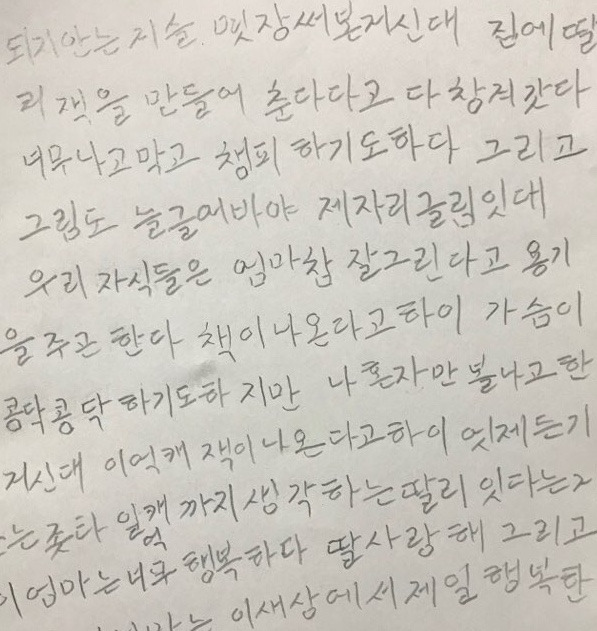 되지안는 저슬 몃장써본거신대 집에딸
리 잭을 만들어 춘다다고 다 창겨갓다
너무나고막고 챔피 하기도하다 그리고
그림도 늘글여바야 제자리글림잇대
우리 자식들은 엄마참 잘그린다고 용기
을 주곤 한다 책이나온다고하이 가슴이
콩닥콩닥 하기도하 지만 나혼자만 볼나고한
거신대 이억캐 잭이나온다고하이 엇제든기
는 좃타 일캑억 까지 생각하는딸리 잇다는거
이 엄마는너무 행복하다 딸사랑해 그리고
이새상에서 제일 행복한